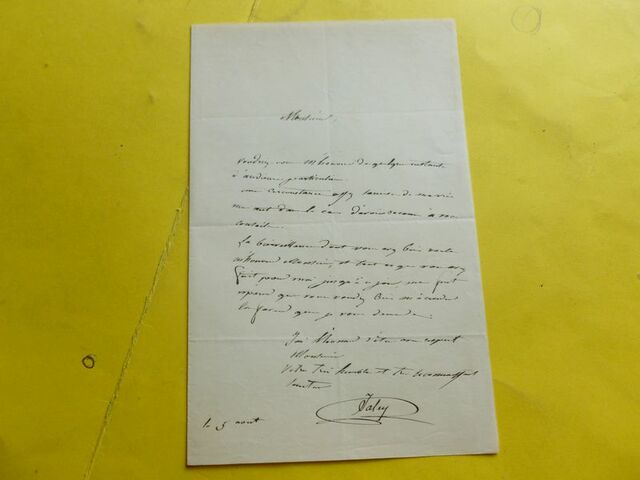 Monsieur,
voudrez vous m'honorer de quelques instants
d'audience particulière
une circonstance assez heureuse de ma vie
me met dans le cas d'avoir recours à vos
conseils.
La bienveillance dont vous avez bien voulu
m'honorer Monsieur, et tout ce que vous avez
fait pour moi jusqu'à ce jour, me fait
espérer que vous voudrez bien m'accorder
la faveur que je vous demande.
J'ai l'honneur d'être avec respect
Monsieur
Votre très humble et très reconnaissant
serviteur
Jaley
le 5 août